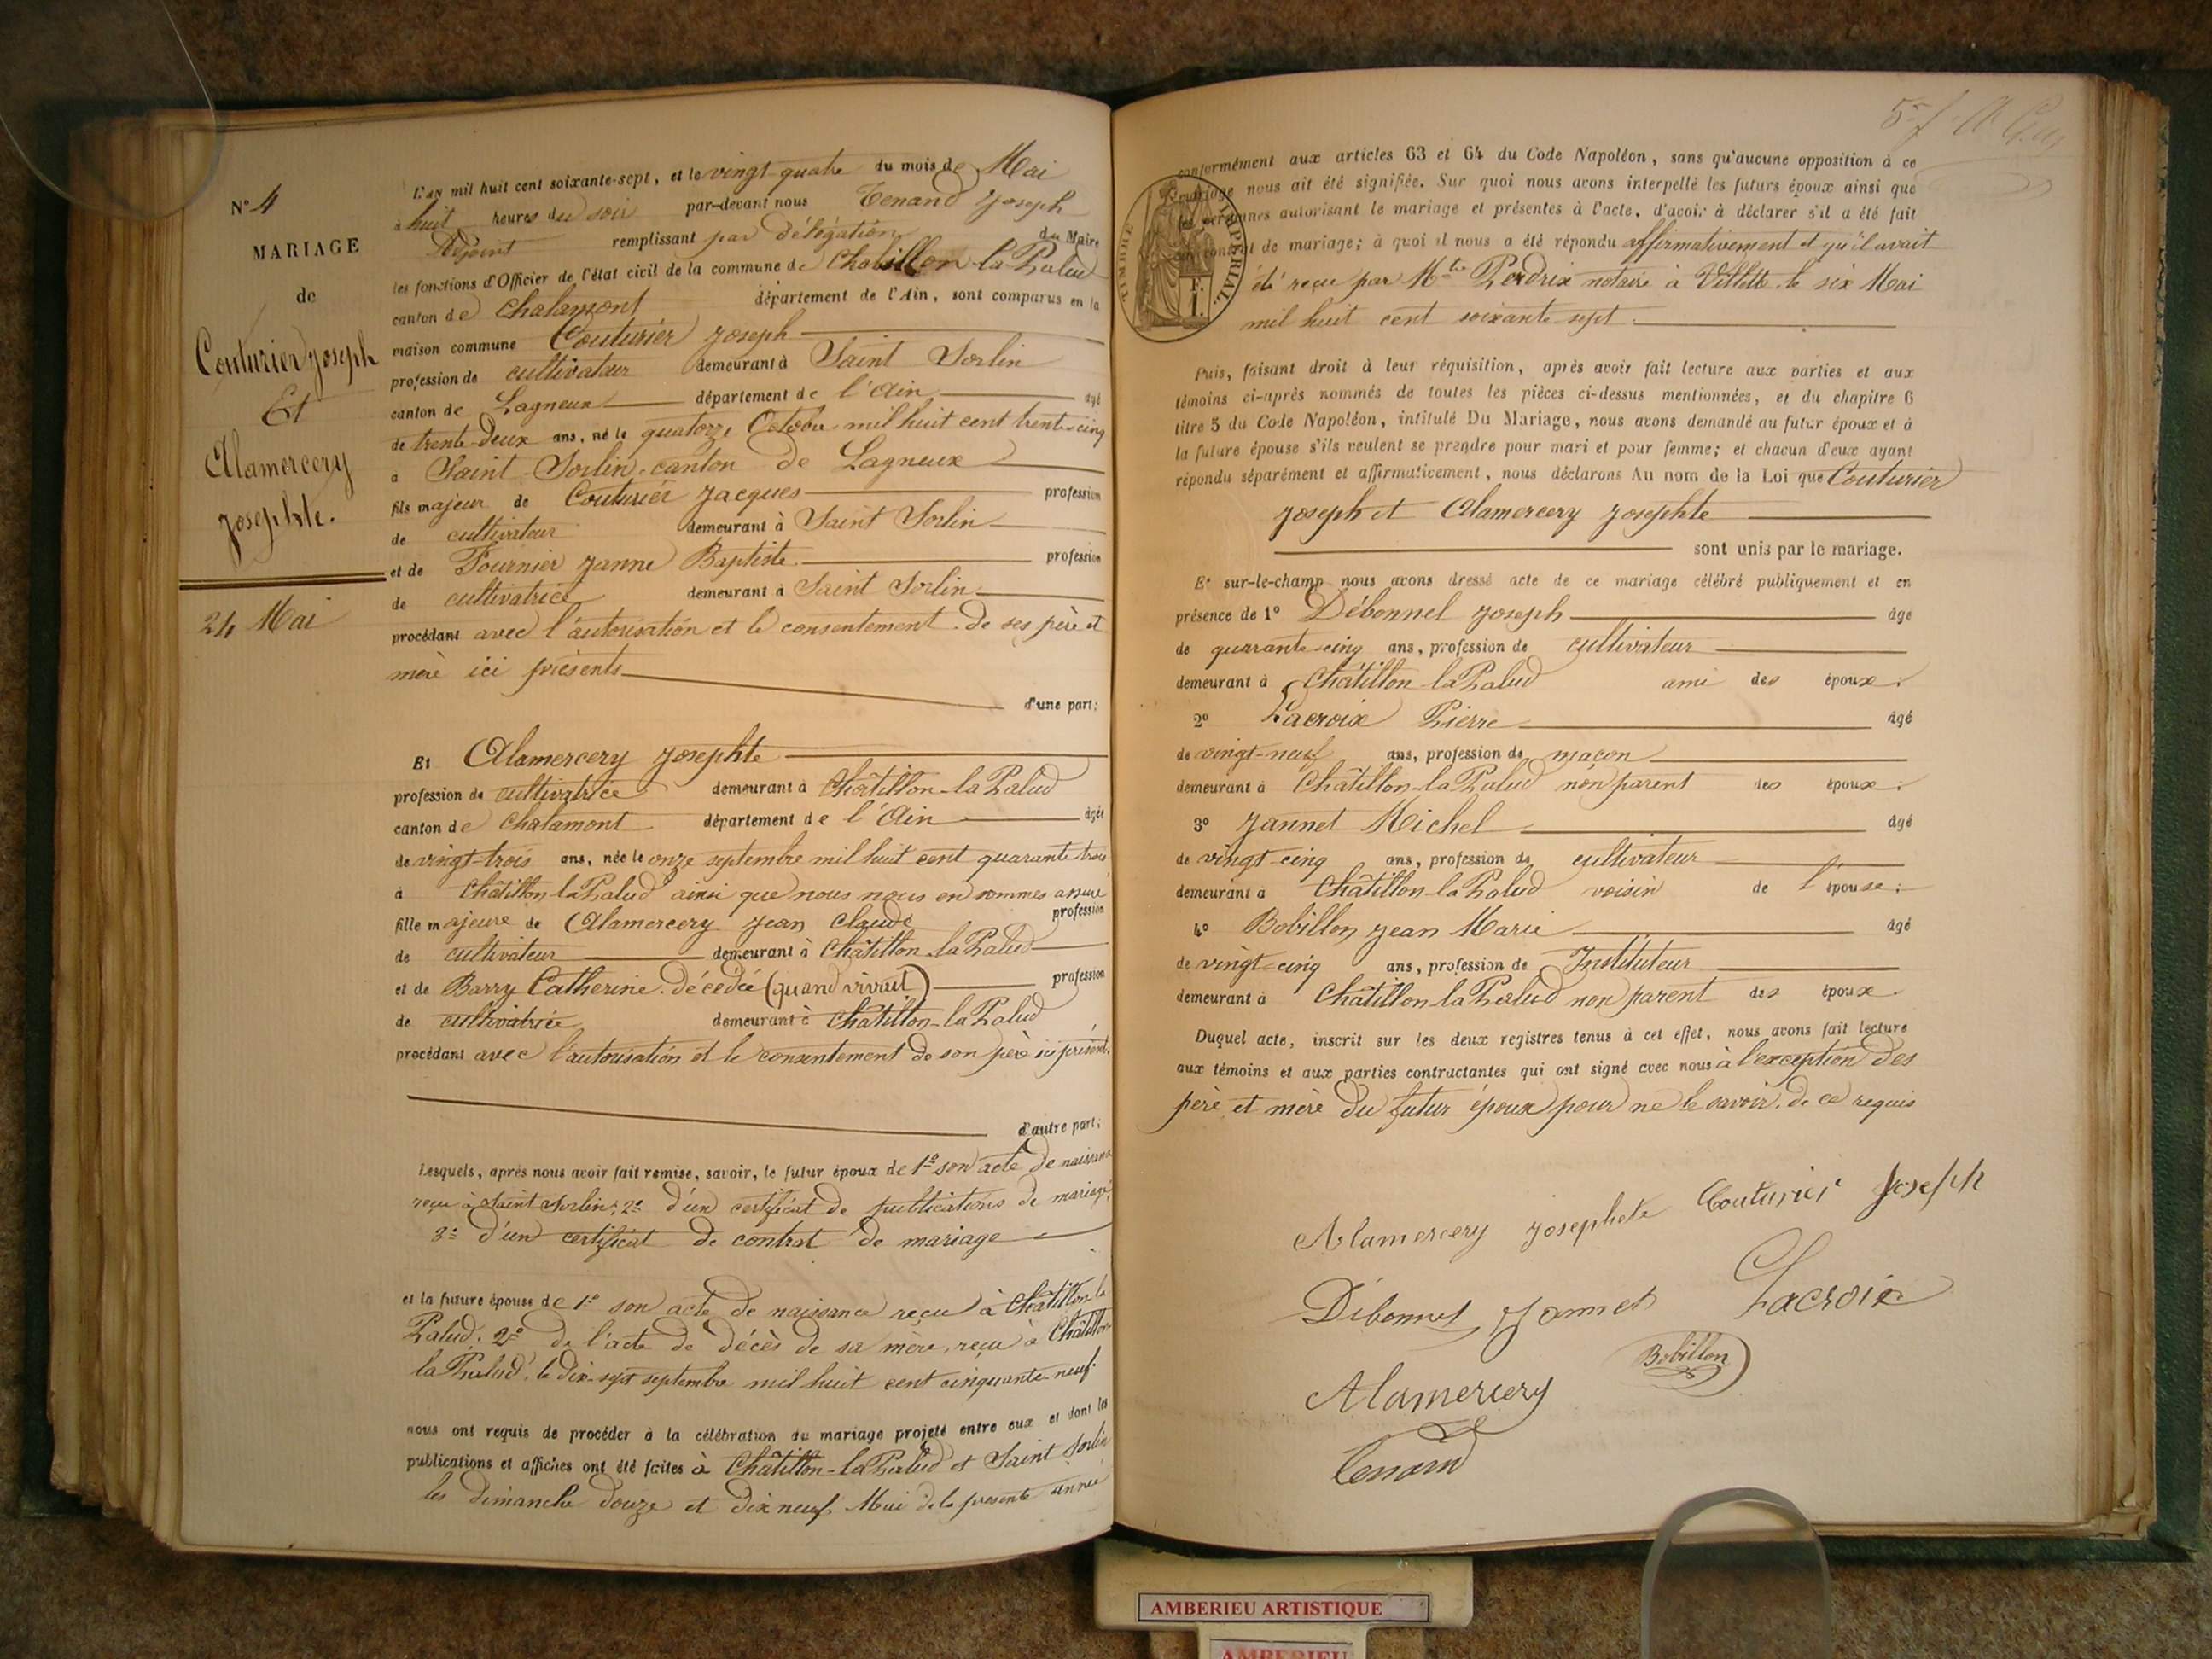 N° 4
MARIAGE
de
Couturier Joseph
Et
Alamercery
Josephte.
24 Mai
L'an mil huit cent soixante-sept, et le vingt-quatre du mois de Mai
à huit heures du soir par-devant nous Tenand Joseph
Adjoint remplissant par délégation du Maire
les fonctions d'Officier de l'état civil de la commune de Chatillon-la-Palud
canton de Chalamont département de l'Ain, sont comparus en la
maison commune Couturier Joseph
profession de cultivateur demeurant à Saint Sorlin
canton de Lagneux département de l'Ain âgé
de trente-deux ans, né le quatorze Octobre mil huit cent trente-cinq
à Saint Sorlin, canton de Lagneux
fils majeur de Couturier Jacques profession
de cultivateur demeurant à Saint Sorlin
et de Fournier Janne Baptiste profession
de cultivatrice demeurant à Saint Sorlin
procédant avec l'autorisation et le consentement de ses père et
mère ici présents
d'une part;
Et Alamercery Josephte
profession de cultivatrice demeurant à Châtillon-la Palud
canton de Chalamont département de l'Ain âgée
de vingt-trois ans, née le onze septembre mil huit cent quarante trois
à Châtillon-la Palud ainsi que nous nous en sommes assuré
fille majeure de Alamercery Jean Claude profession
de cultivateur demeurant à Châtillon-la Palud
et de Barry Catherine décédée (quand vivait) profession
de cultivatrice demeurant à Châtillon-la Palud
procédant avec l'autorisation et le consentement de son père ici présent.
d'autre part;
Lesquels, après nous avoir fait remise, savoir, le futur époux de 1° son acte de naissance
reçu à Saint Sorlin; 2° d'un certificat de publications de mariage,
3° d'un certificat de contrat de mariage
et la future épouse de 1° son acte de naissance reçu à Châtillon la
Palud. 2° de l'acte de décès de sa mère, reçu à Châtillon
la Palud, le dix-sept septembre mil huit cent cinquante-neuf.
nous ont requis de procéder à la célébration du mariage projeté entre eux et dont les
publications et affiches ont été faites à Châtillon-la Palud et Saint Sorlin
les dimanche douze et dix neuf Mai de la présente année
conformément aux articles 63 et 64 du Code Napoléon, sans qu'aucune opposition à ce
mariage nous ait été signifiée. Sur quoi nous avons interpellé les futurs époux ainsi que
les personnes autorisant le mariage et présentes à l'acte, d'avoir à déclarer s'il a été fait
un contrat de mariage; à quoi il nous a été répondu affirmativement et qu'il avait
été reçu par Mtre Perdrix notaire à Villette le six Mai
mil huit cent soixante sept.
TIMBRE IMPERIAL.
F.
1.
Puis, faisant droit à leur réquisition, après avoir fait lecture aux parties et aux
témoins ci-après nommés de toutes les pièces ci-dessus mentionnées, et du chapitre 6
titre 5 du Code Napoléon, intitulé Du Mariage, nous avons demandé au futur époux et à
la future épouse s'ils veulent se prendre pour mari et pour femme; et chacun d'eux ayant
répondu séparément et affirmativement, nous déclarons Au nom de la Loi que Couturier
Joseph et Alamercery Josephte
sont unis par le mariage.
Et sur-le-champ nous avons dressé acte de ce mariage célébré publiquement et en
présence de 1° Débonnel Joseph âgé
de quarante-cinq ans, profession de cultivateur
demeurant à Châtillon-la Palud ami des époux;
2° Lacroix Pierre âgé
de vingt-neuf ans, profession de maçon
demeurant à Châtillon-la Palud non parent des époux;
3° Jannet Michel âgé
de vingt-cinq ans, profession de cultivateur
demeurant à Châtillon-la Palud voisin de l'épouse;
4° Bobillon Jean Marie âgé
de vingt-cinq ans, profession de Instituteur
demeurant à Châtillon la Palud non parent des époux.
Duquel acte, inscrit sur les deux registres tenus à cet effet, nous avons fait lecture
aux témoins et aux parties contractantes qui ont signé avec nous à l'exception des
père et mère du futur époux pour ne le savoir, de ce requis
Alamercery Josephete Couturier Joseph
Débonnel Jannet Lacroix
Bobillon
Alamercery
Tenand
AMBERIEU ARTISTIQUE
AMBERIEU